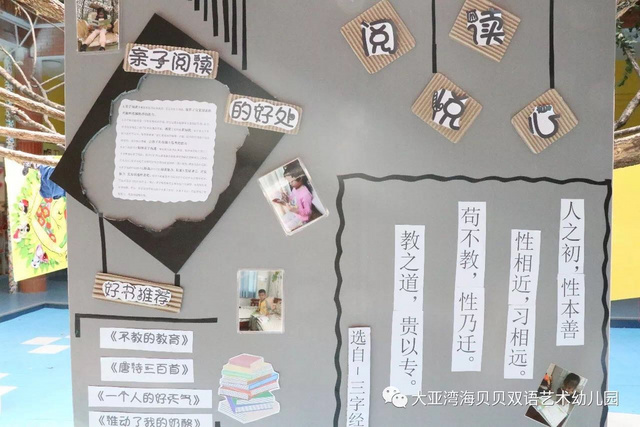 阅读
悦心
亲子阅读
的好处
人之初，性本善
性相近，习相远。
苟不教，性乃迁。
教之道，贵以专。
选自-三字经
好书推荐
《不教的教育》
《唐诗三百首》
《一个人的好天气》
《谁动了我的奶酪》
大亚湾海贝贝双语艺术幼儿园